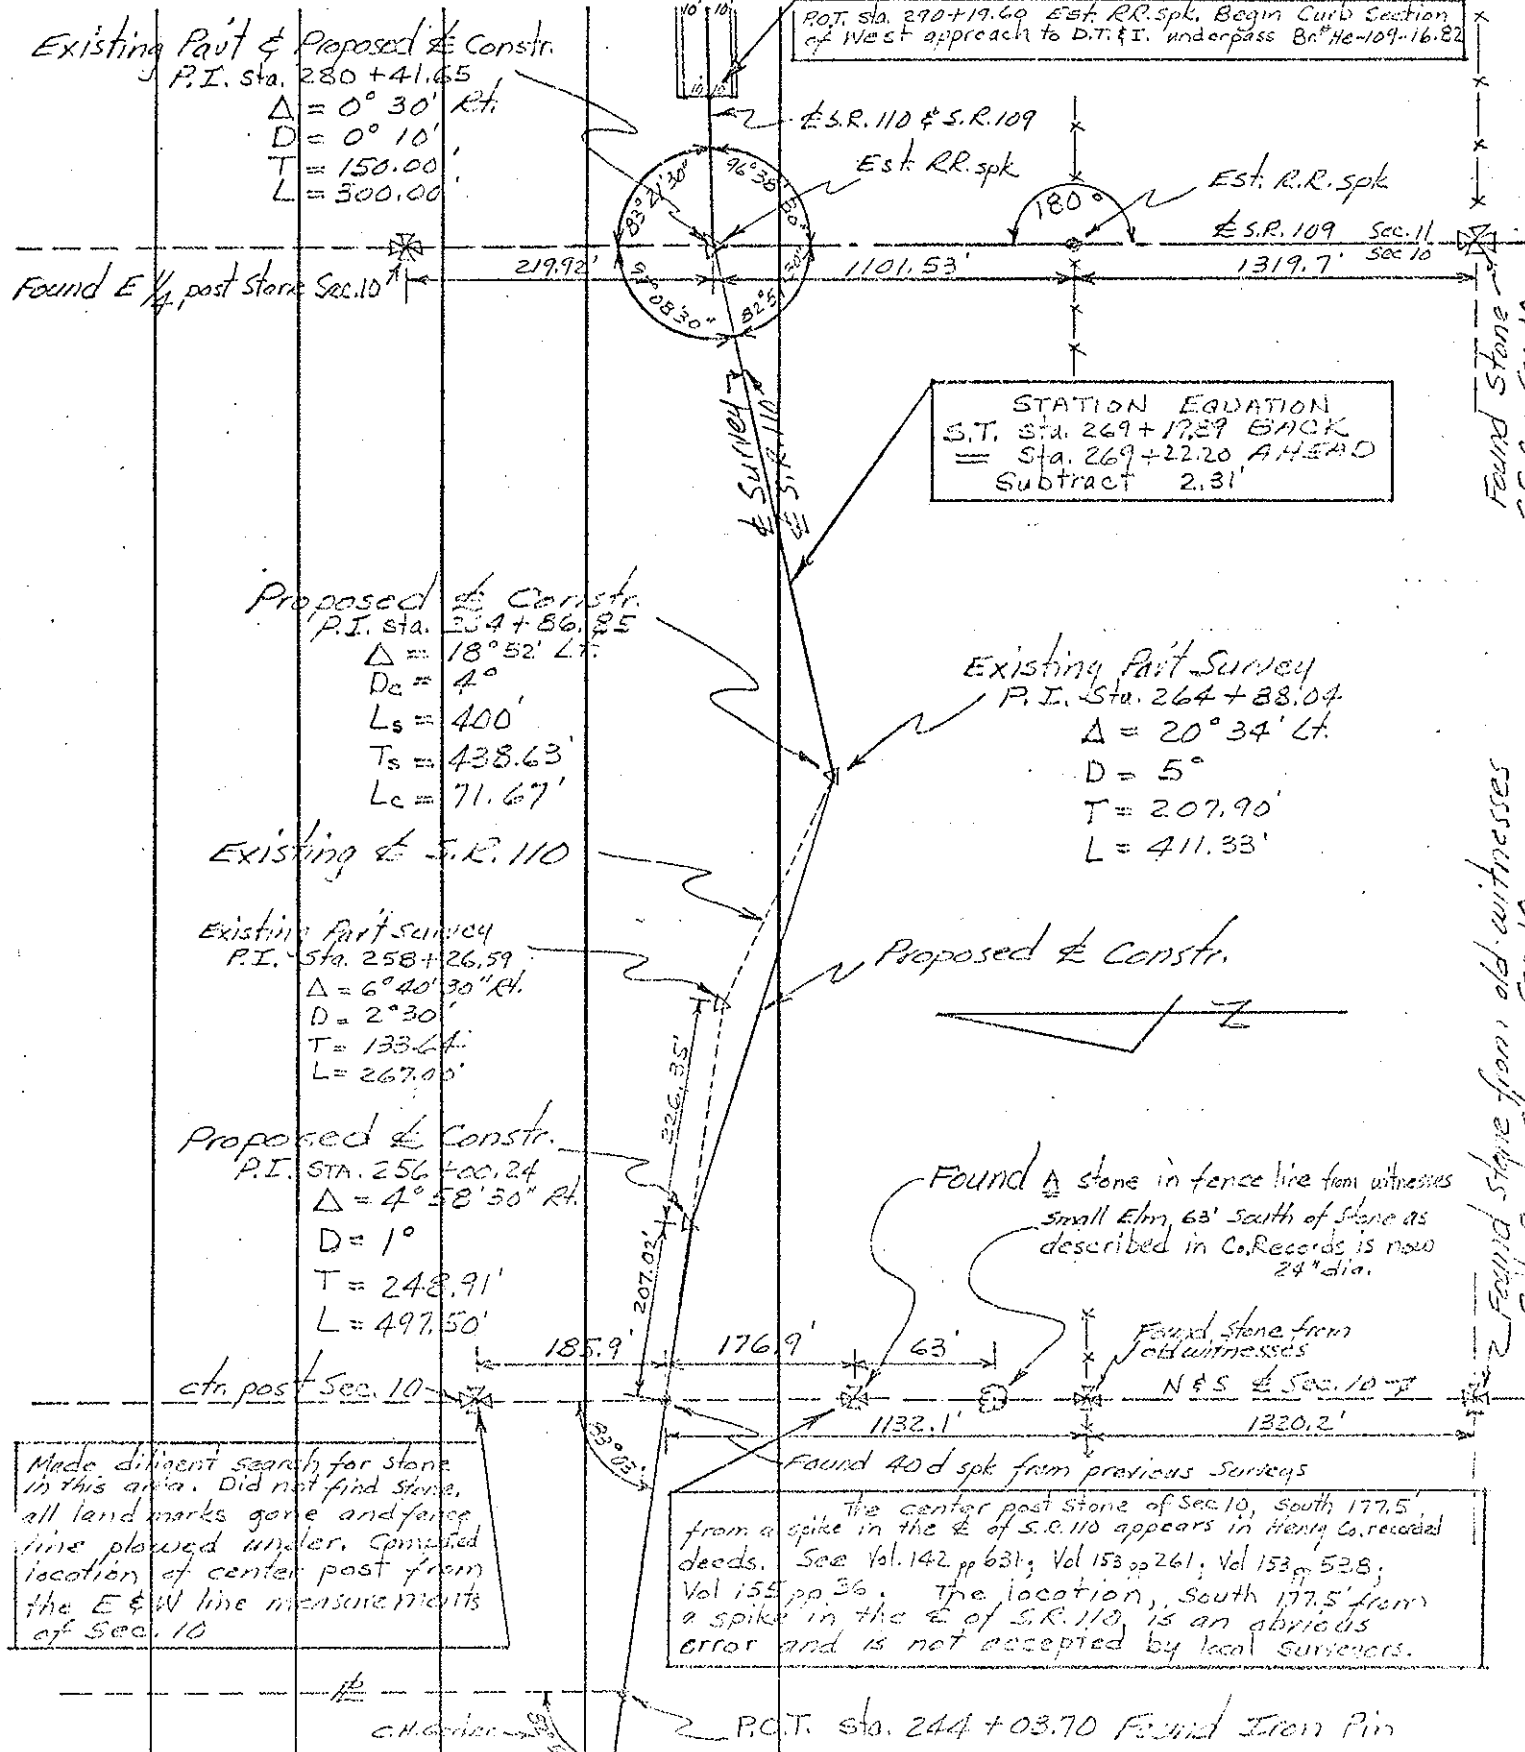 10' 10'
P.O.T. sta. 290+19.60 Est. RR. spk. Begin Curb Section
of West approach to D.T. & I. underpass Br.# He-109-16.82
Existing Pav't & Proposed ℄ Constr.
P.I. sta. 280+41.65
Δ = 0° 30' Rt.
D = 0° 10'
T = 150.00'
L = 300.00'
10' 10'
℄ S.R. 110 & S.R. 109
Est. RR. spk
Est. R.R. spk
83° 21' 30"
96° 38' 30"
180°
℄ S.R. 109
Sec. 11
Sec 10
Found E ¼ post Stone Sec. 10
219.92'
1101.53'
1319.7'
08' 30"
82° 51' 30"
Found Stone
STATION EQUATION
S.T. Sta. 269+19.89 BACK
= Sta. 269+22.20 AHEAD
Subtract 2.31'
℄ Survey
℄ S.R. 110
Proposed ℄ Constr.
P.I. sta. 264+86.85
Δ = 18° 52' Lt.
Dc = 4°
Ls = 400'
Ts = 438.63'
Lc = 71.67'
Existing Pav't Survey
P.I. Sta. 264+88.04
Δ = 20° 34' Lt.
D = 5°
T = 207.90'
L = 411.33'
Existing ℄ S.R. 110
Existing Pav't Survey
P.I. Sta. 258+26.59
Δ = 6° 40' 30" Rt.
D = 2° 30'
T = 133.64'
L = 267.00'
Proposed ℄ Constr.
226.35'
Proposed ℄ Constr.
P.I. STA. 256+00.24
Δ = 4° 58' 30" Rt.
D = 1°
T = 248.91'
L = 497.50'
207.02'
Found Stone from old witnesses
Found stone in fence line from witnesses
Small Elm, 63' South of Stone as
described in Co. Records is now
24" dia.
185.9'
176.9'
63'
Found Stone from
old witnesses
ctr. post Sec. 10
N & S ℄ Sec. 10
1132.1'
1320.2'
03'
Found 40d spk from previous Surveys
Made diligent search for stone
in this area. Did not find Stone,
all land marks gone and fence
line plowed under. Computed
location of center post from
the E & W line measurements
of Sec. 10
The center post stone of Sec 10, South 177.5'
from a spike in the ℄ of S.R. 110 appears in Henry Co. recorded
deeds. See Vol. 142 pp 631; Vol 153 pp 261; Vol 153 pp 538;
Vol 155 pp 36. The location, South 177.5' from
a spike in the ℄ of S.R. 110, is an obvious
error and is not accepted by local Surveyors.
P.O.T. sta. 244+03.70 Found Iron Pin